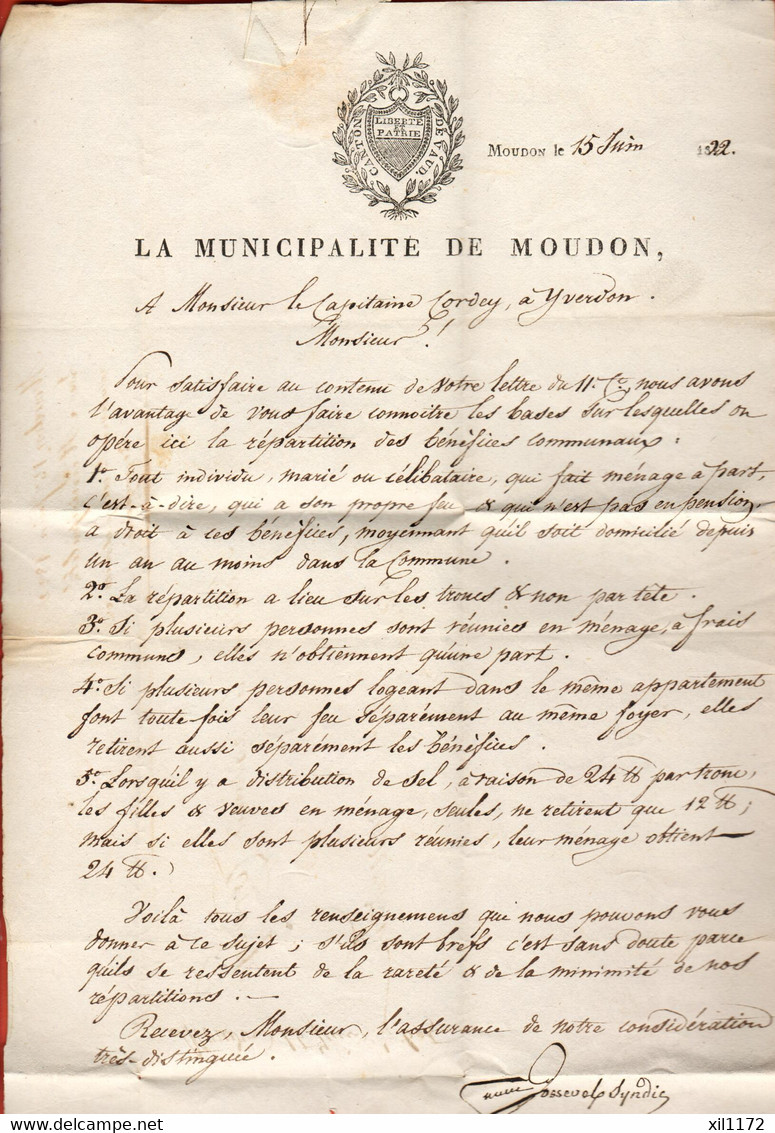 CANTON DE VAUD.
LIBERTÉ
ET
PATRIE
MOUDON le 15 Juin 1822.
LA MUNICIPALITÉ DE MOUDON,
A Monsieur le Capitaine Cordey, à Yverdon.
Monsieur !
Pour satisfaire au contenu de Votre lettre du 11e Ct nous avons
l'avantage de vous faire connoître les bases sur lesquelles on
opére ici la répartition des bénéfices communaux :
1o Tout individu, marié ou célibataire, qui fait ménage à part,
c'est-à-dire, qui a son propre feu & qui n'est pas en pension,
a droit à ces bénéfices, moyennant qu'il soit domicilié depuis
un an au moins dans la Commune.
2o La répartition a lieu sur les troncs & non par tête.
3o Si plusieurs personnes sont réunies en ménage, à frais
communs, elles n'obtiennent qu'une part.
4o Si plusieurs personnes logeant dans le même appartement
font toute fois leur feu séparément au même foyer, elles
retirent aussi séparément les bénéfices.
5o Lorsqu'il y a distribution de sel, à raison de 24 ℔ par tronc,
les filles & veuves en ménage, seules, ne retirent que 12 ℔;
mais si elles sont plusieurs réunies, leur ménage obtient
24 ℔.
Voilà tous les renseignemens que nous pouvons vous
donner à ce sujet; s'ils sont brefs c'est sans doute parce
qu'ils se ressentent de la rareté & de la minimité de nos
répartitions.
Recevez, Monsieur, l'assurance de notre considération
très-distinguée.
Syndic
delcampe.net
xil1172